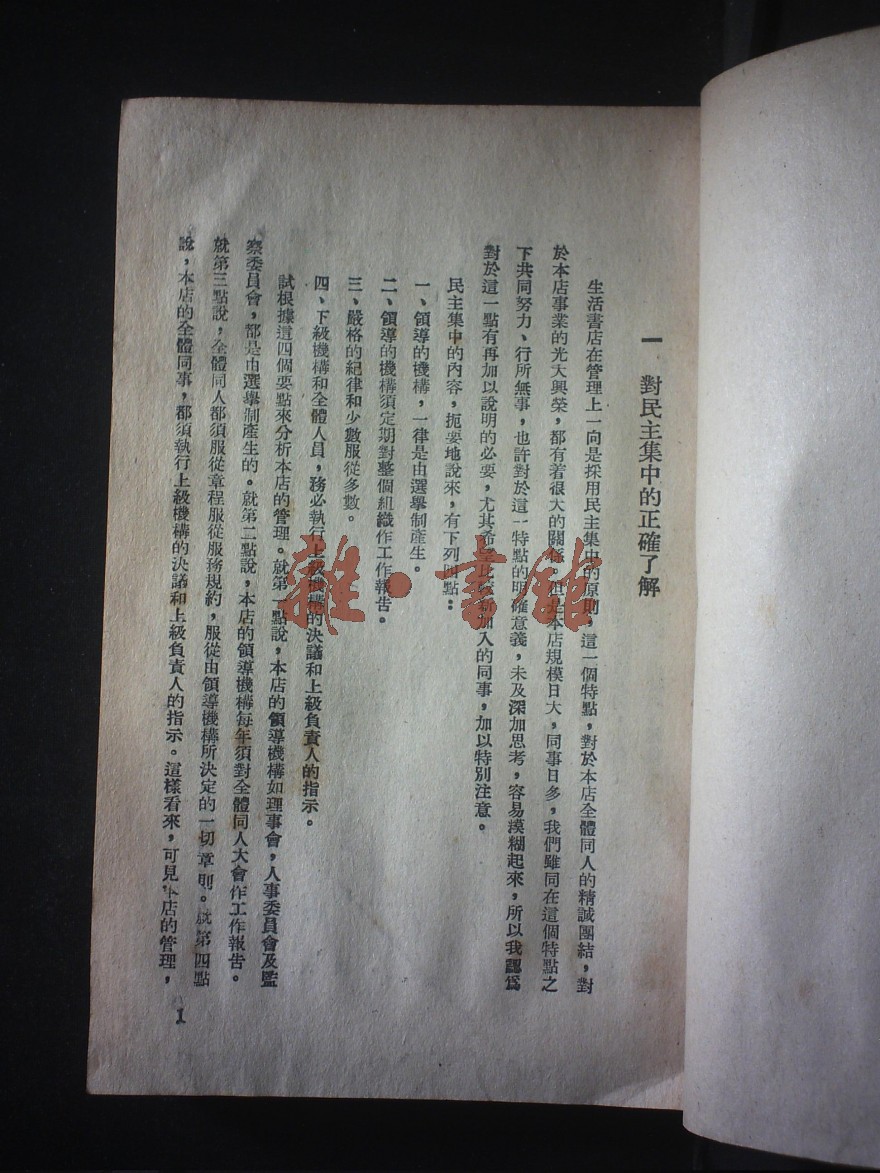 一　對民主集中的正確了解
生活書店在管理上一向是採用民主集中的原則，這一個特點，對於本店全體同人的精誠團結，對
於本店事業的光大興榮，都有着很大的關係，但是本店規模日大，同事日多，我們雖同在這個特點之
下共同努力、行所無事，也許對於這一特點的明確意義，未及深加思考，容易模糊起來，所以我認爲
對於這一點有再加以說明的必要，尤其希望比較新加入的同事，加以特別注意。
民主集中的內容，扼要地說來，有下列四點：
一、領導的機構，一律是由選舉制產生。
二、領導的機構須定期對整個組織作工作報告。
三、嚴格的紀律和少數服從多數。
四、下級機構和全體人員，務必執行上級機構的決議和上級負責人的指示。
試根據這四個要點來分析本店的管理。就第一點說，本店的領導機構如理事會，人事委員會及監
察委員會，都是由選舉制產生的。就第二點說，本店的領導機構每年須對全體同人大會作工作報告。
就第三點說，全體同人都須服從章程服從服務規約，服從由領導機構所決定的一切章則。就第四點
說，本店的全體同事，都須執行上級機構的決議和上級負責人的指示。這樣看來，可見本店的管理，
1
雜·書館